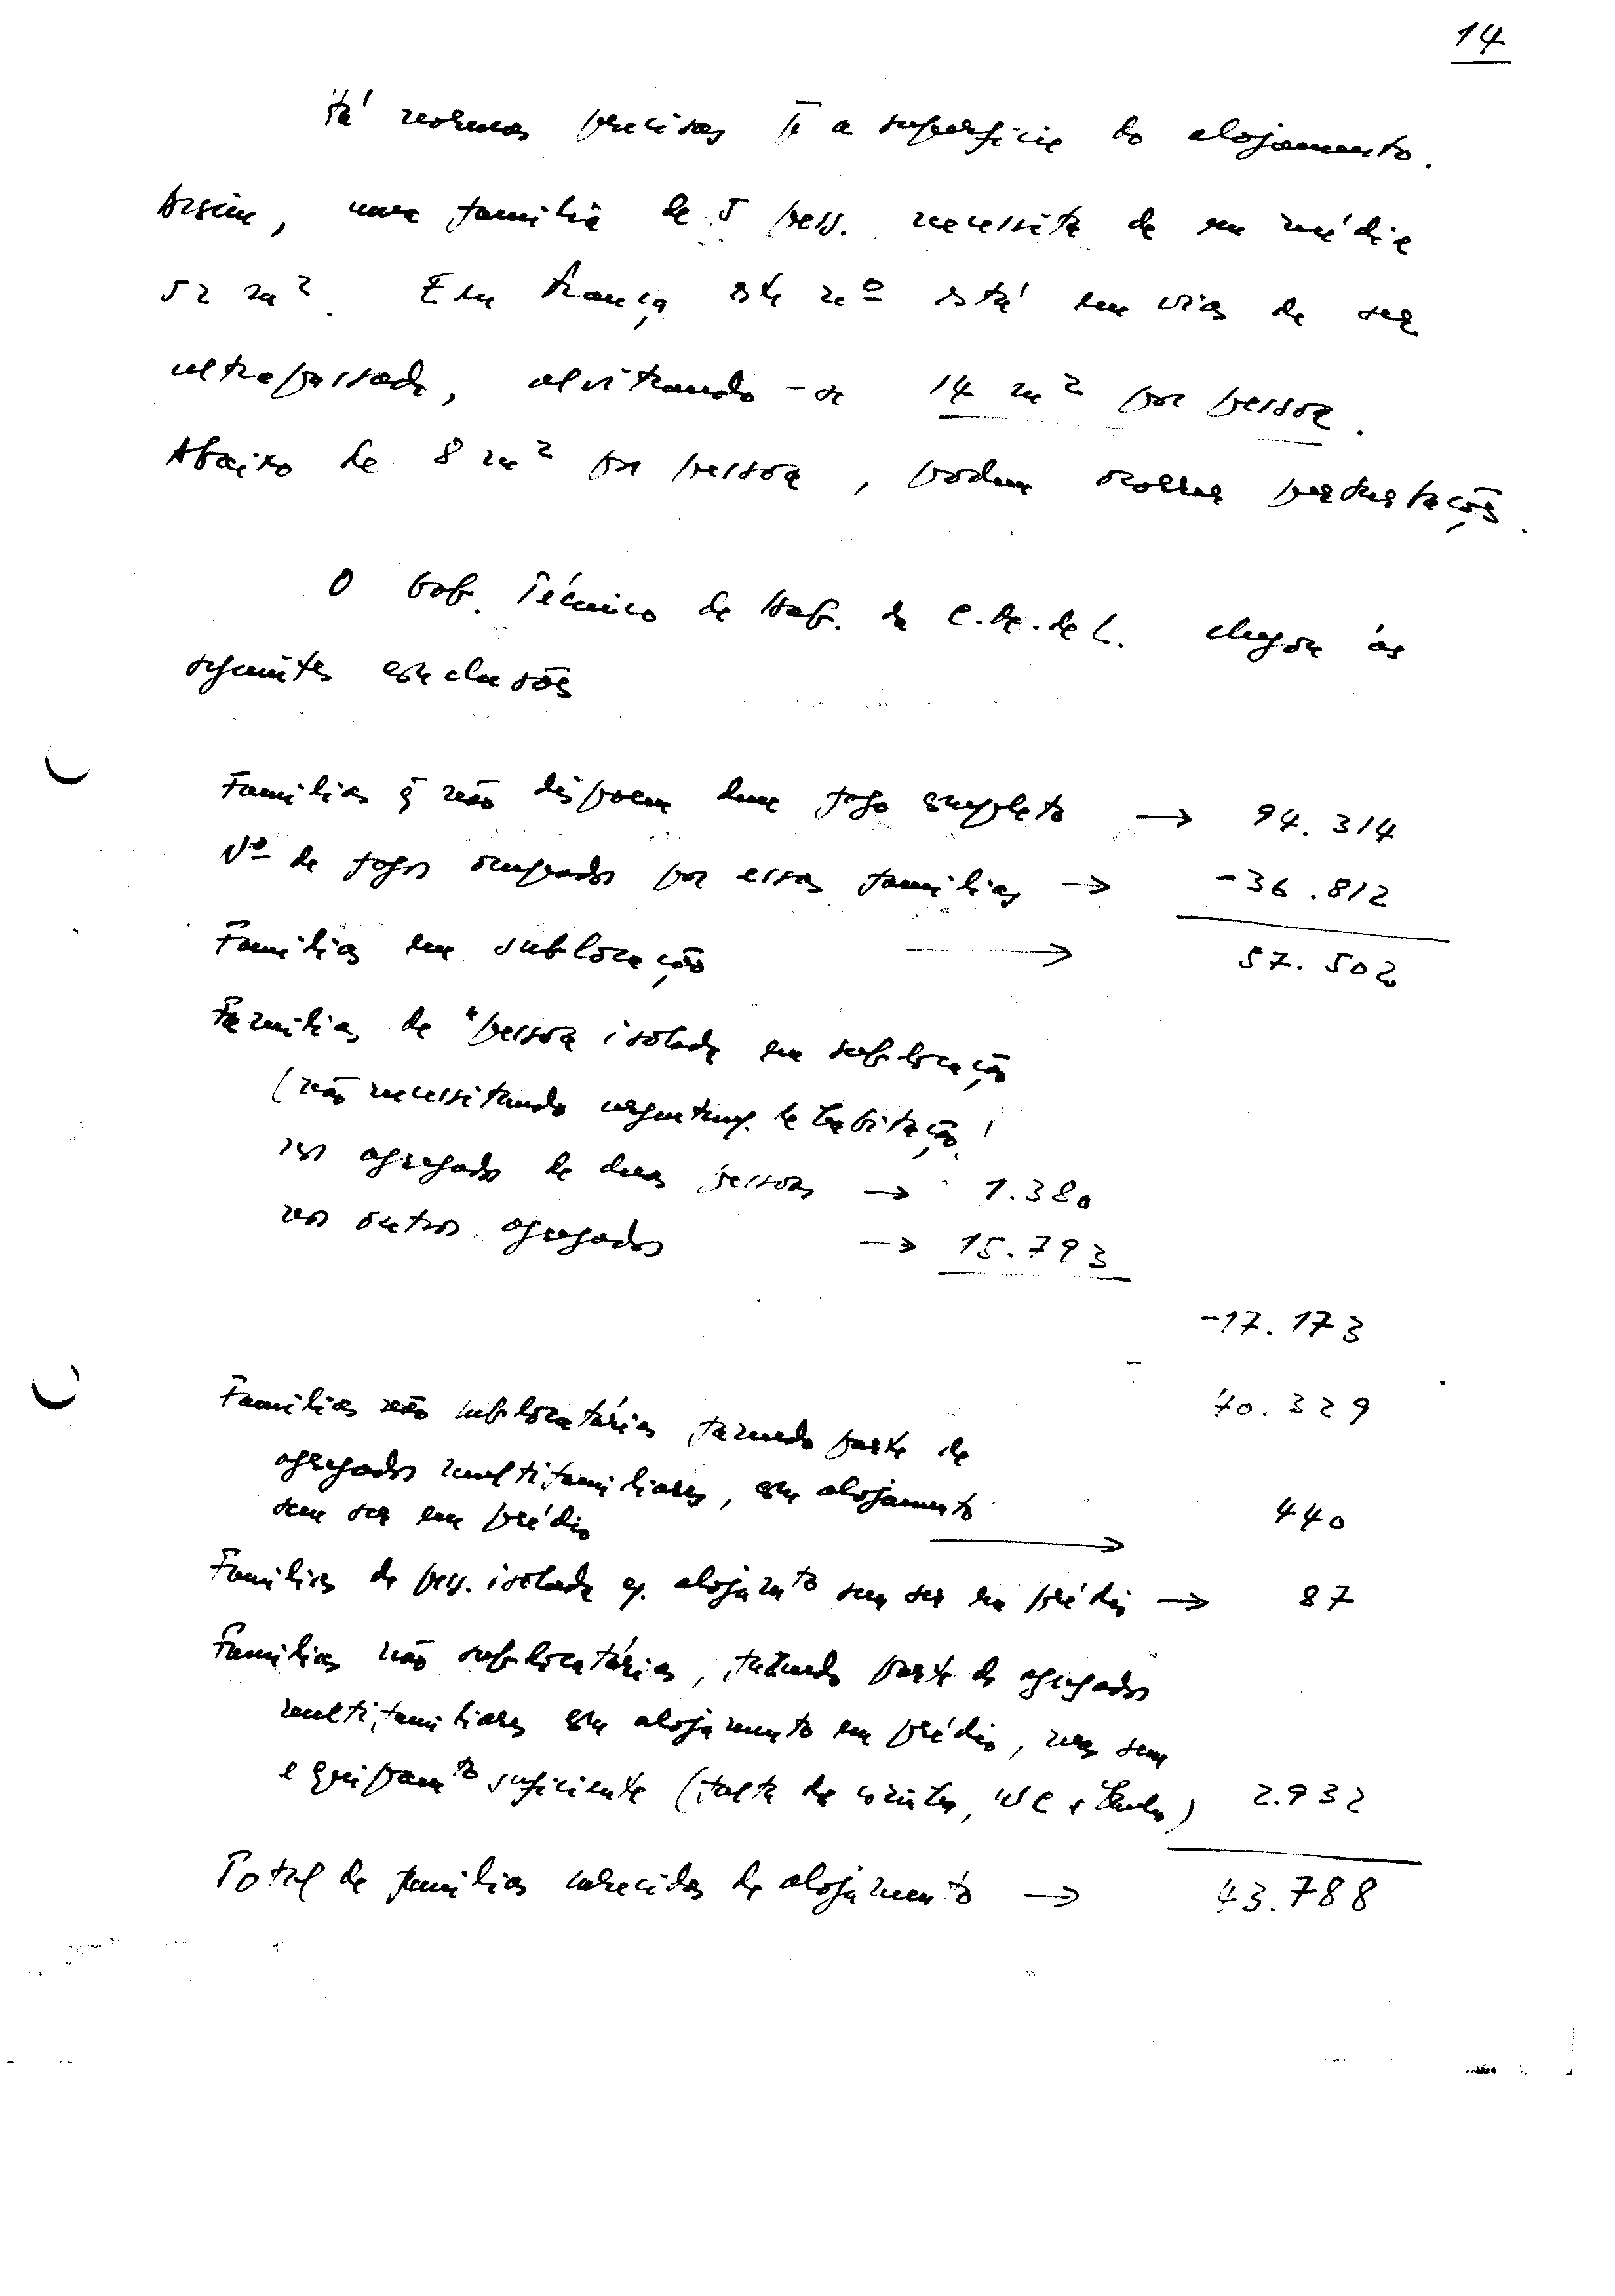 14
Há normas precisas p̄ a superfície do alojamento.
Assim, uma família de 5 pess. necessita de em média
52 m². Em França este nº está em vias de ser
ultrapassado, alvitrando-se 14 m² por pessoa.
Abaixo de 8 m² por pessoa, podem ocorrer perturbações.
O Gab. Técnico de Hab. da C. M. de L. chegou às
seguintes conclusões
Famílias q̄ não dispoem dum fogo completo → 94.314
Nº de fogos ocupados por essas famílias → -36.812
Famílias em sublocação → 57.502
Famílias de "pessoa isolada em sublocação
(não necessitando urgentemt. de habitação)
nos agregados de duas pessoas → 1.380
nos outros agregados → 15.793
-17.173
40.329
Famílias não sublocatárias, fazendo parte de
agregados multifamiliares, em alojamento
sem ser em prédio → 440
Famílias de pess. isolada e. alojamto sem ser em prédio → 87
Famílias não sublocatárias, fazendo parte de agregados
multifamiliares em alojamento em prédio, mas sem
equipamto suficiente (falta de cozinha, WC e banho) 2.932
Total de famílias carecidas de alojamento → 43.788